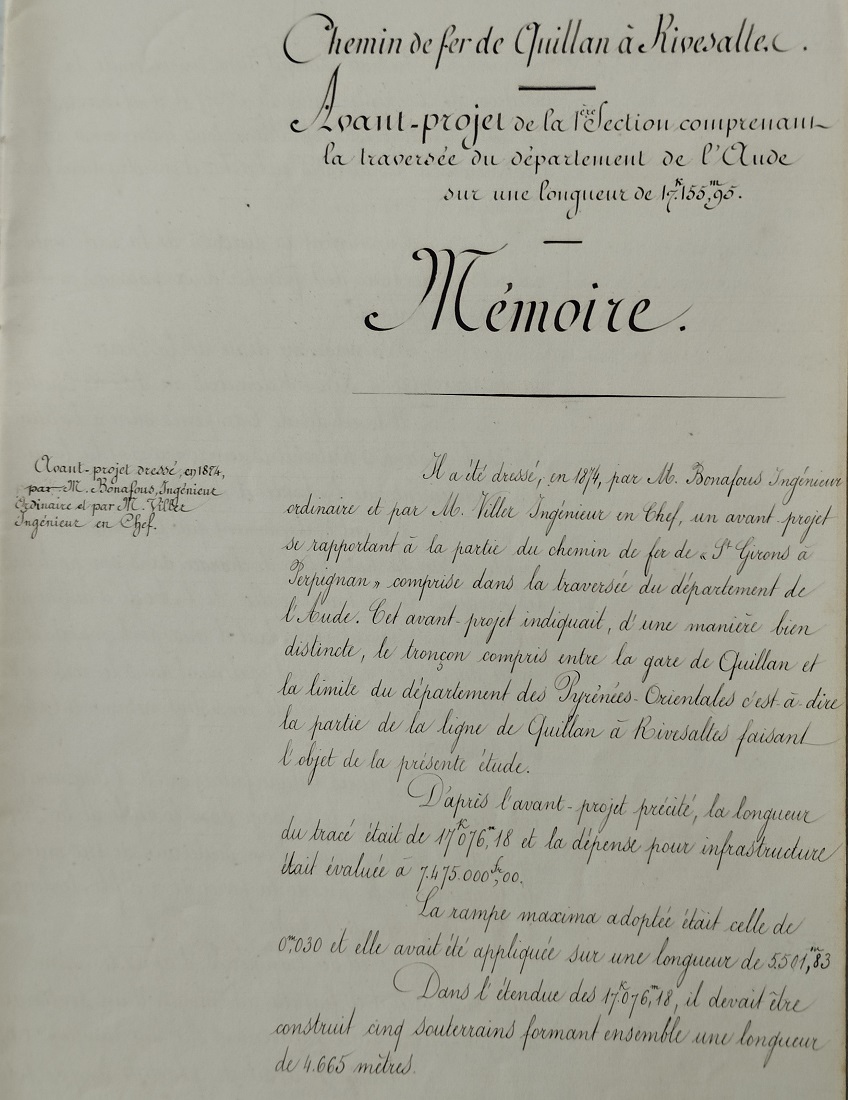 Chemin de fer de Quillan à Rivesaltes.
Avant-projet de la 1ère Section comprenant
la traversée du département de l'Aude
sur une longueur de 17k155m,95.
Mémoire.
Avant-projet dressé, en 1874,
par M. Bonafous, Ingénieur
Ordinaire et par M. Viller
Ingénieur en Chef.
Il a été dressé, en 1874, par M. Bonafous Ingénieur
ordinaire et par M. Viller Ingénieur en Chef, un avant-projet
se rapportant à la partie du chemin de fer de « St Girons à
Perpignan » comprise dans la traversée du département de
l'Aude. Cet avant-projet indiquait, d'une manière bien
distincte, le tronçon compris entre la gare de Quillan et
la limite du département des Pyrénées-Orientales c'est-à-dire
la partie de la ligne de Quillan à Rivesaltes faisant
l'objet de la présente étude.
D'après l'avant-projet précité, la longueur
du tracé était de 17k076m,18 et la dépense pour infrastructure
était évaluée à 7.475.000fr,00.
La rampe maxima adoptée était celle de
0m,030 et elle avait été appliquée sur une longueur de 5.501m,83
Dans l'étendue des 17k076m,18, il devait être
construit cinq souterrains formant ensemble une longueur
de 4.665 mètres.